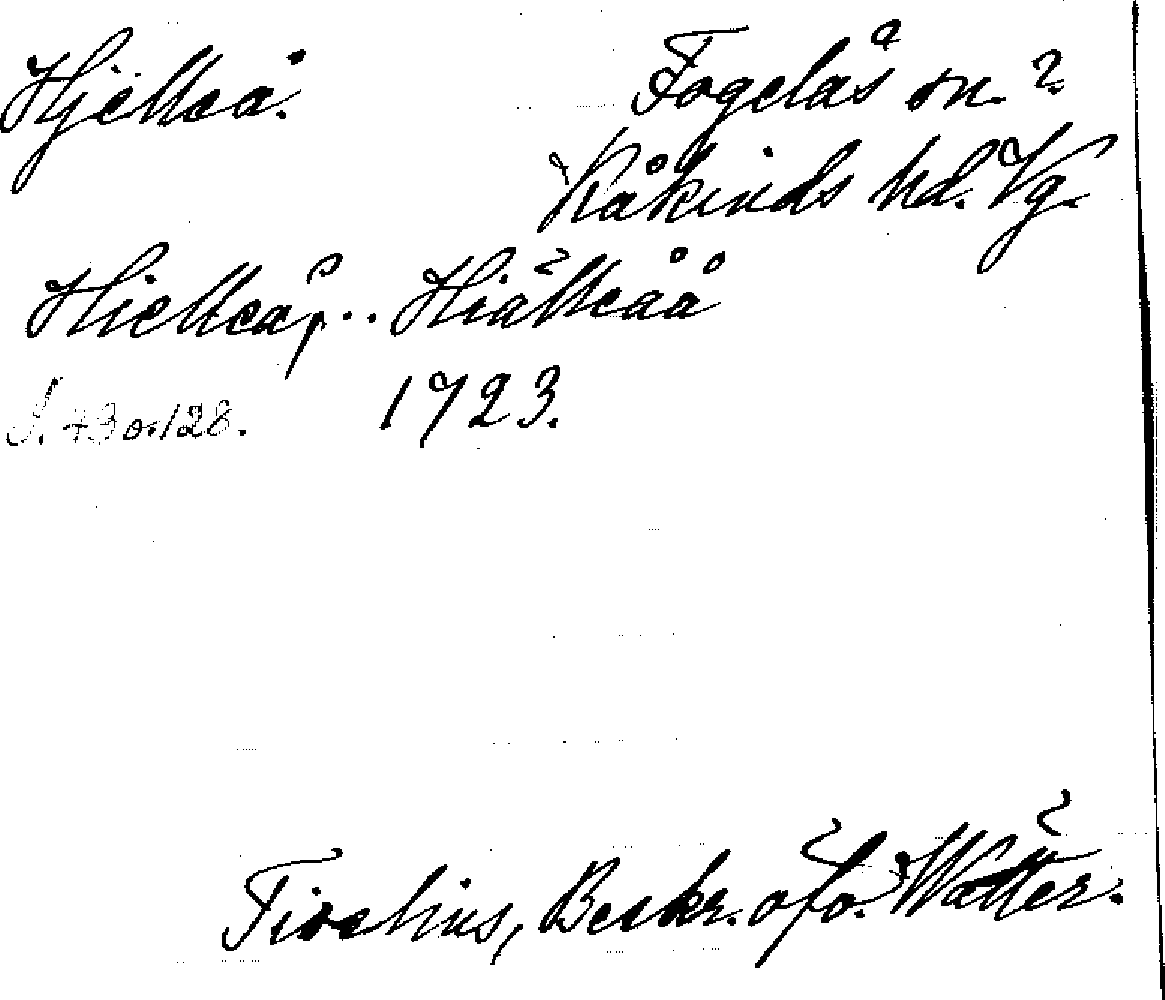 Hjelleå. Fogelås sn. ?
Kåkinds hd. Vg.
Hielleå, .. Hiälleåå
S. 73 o. 128. 1723.
Tiselius, Beskr. öfv. Wätter.